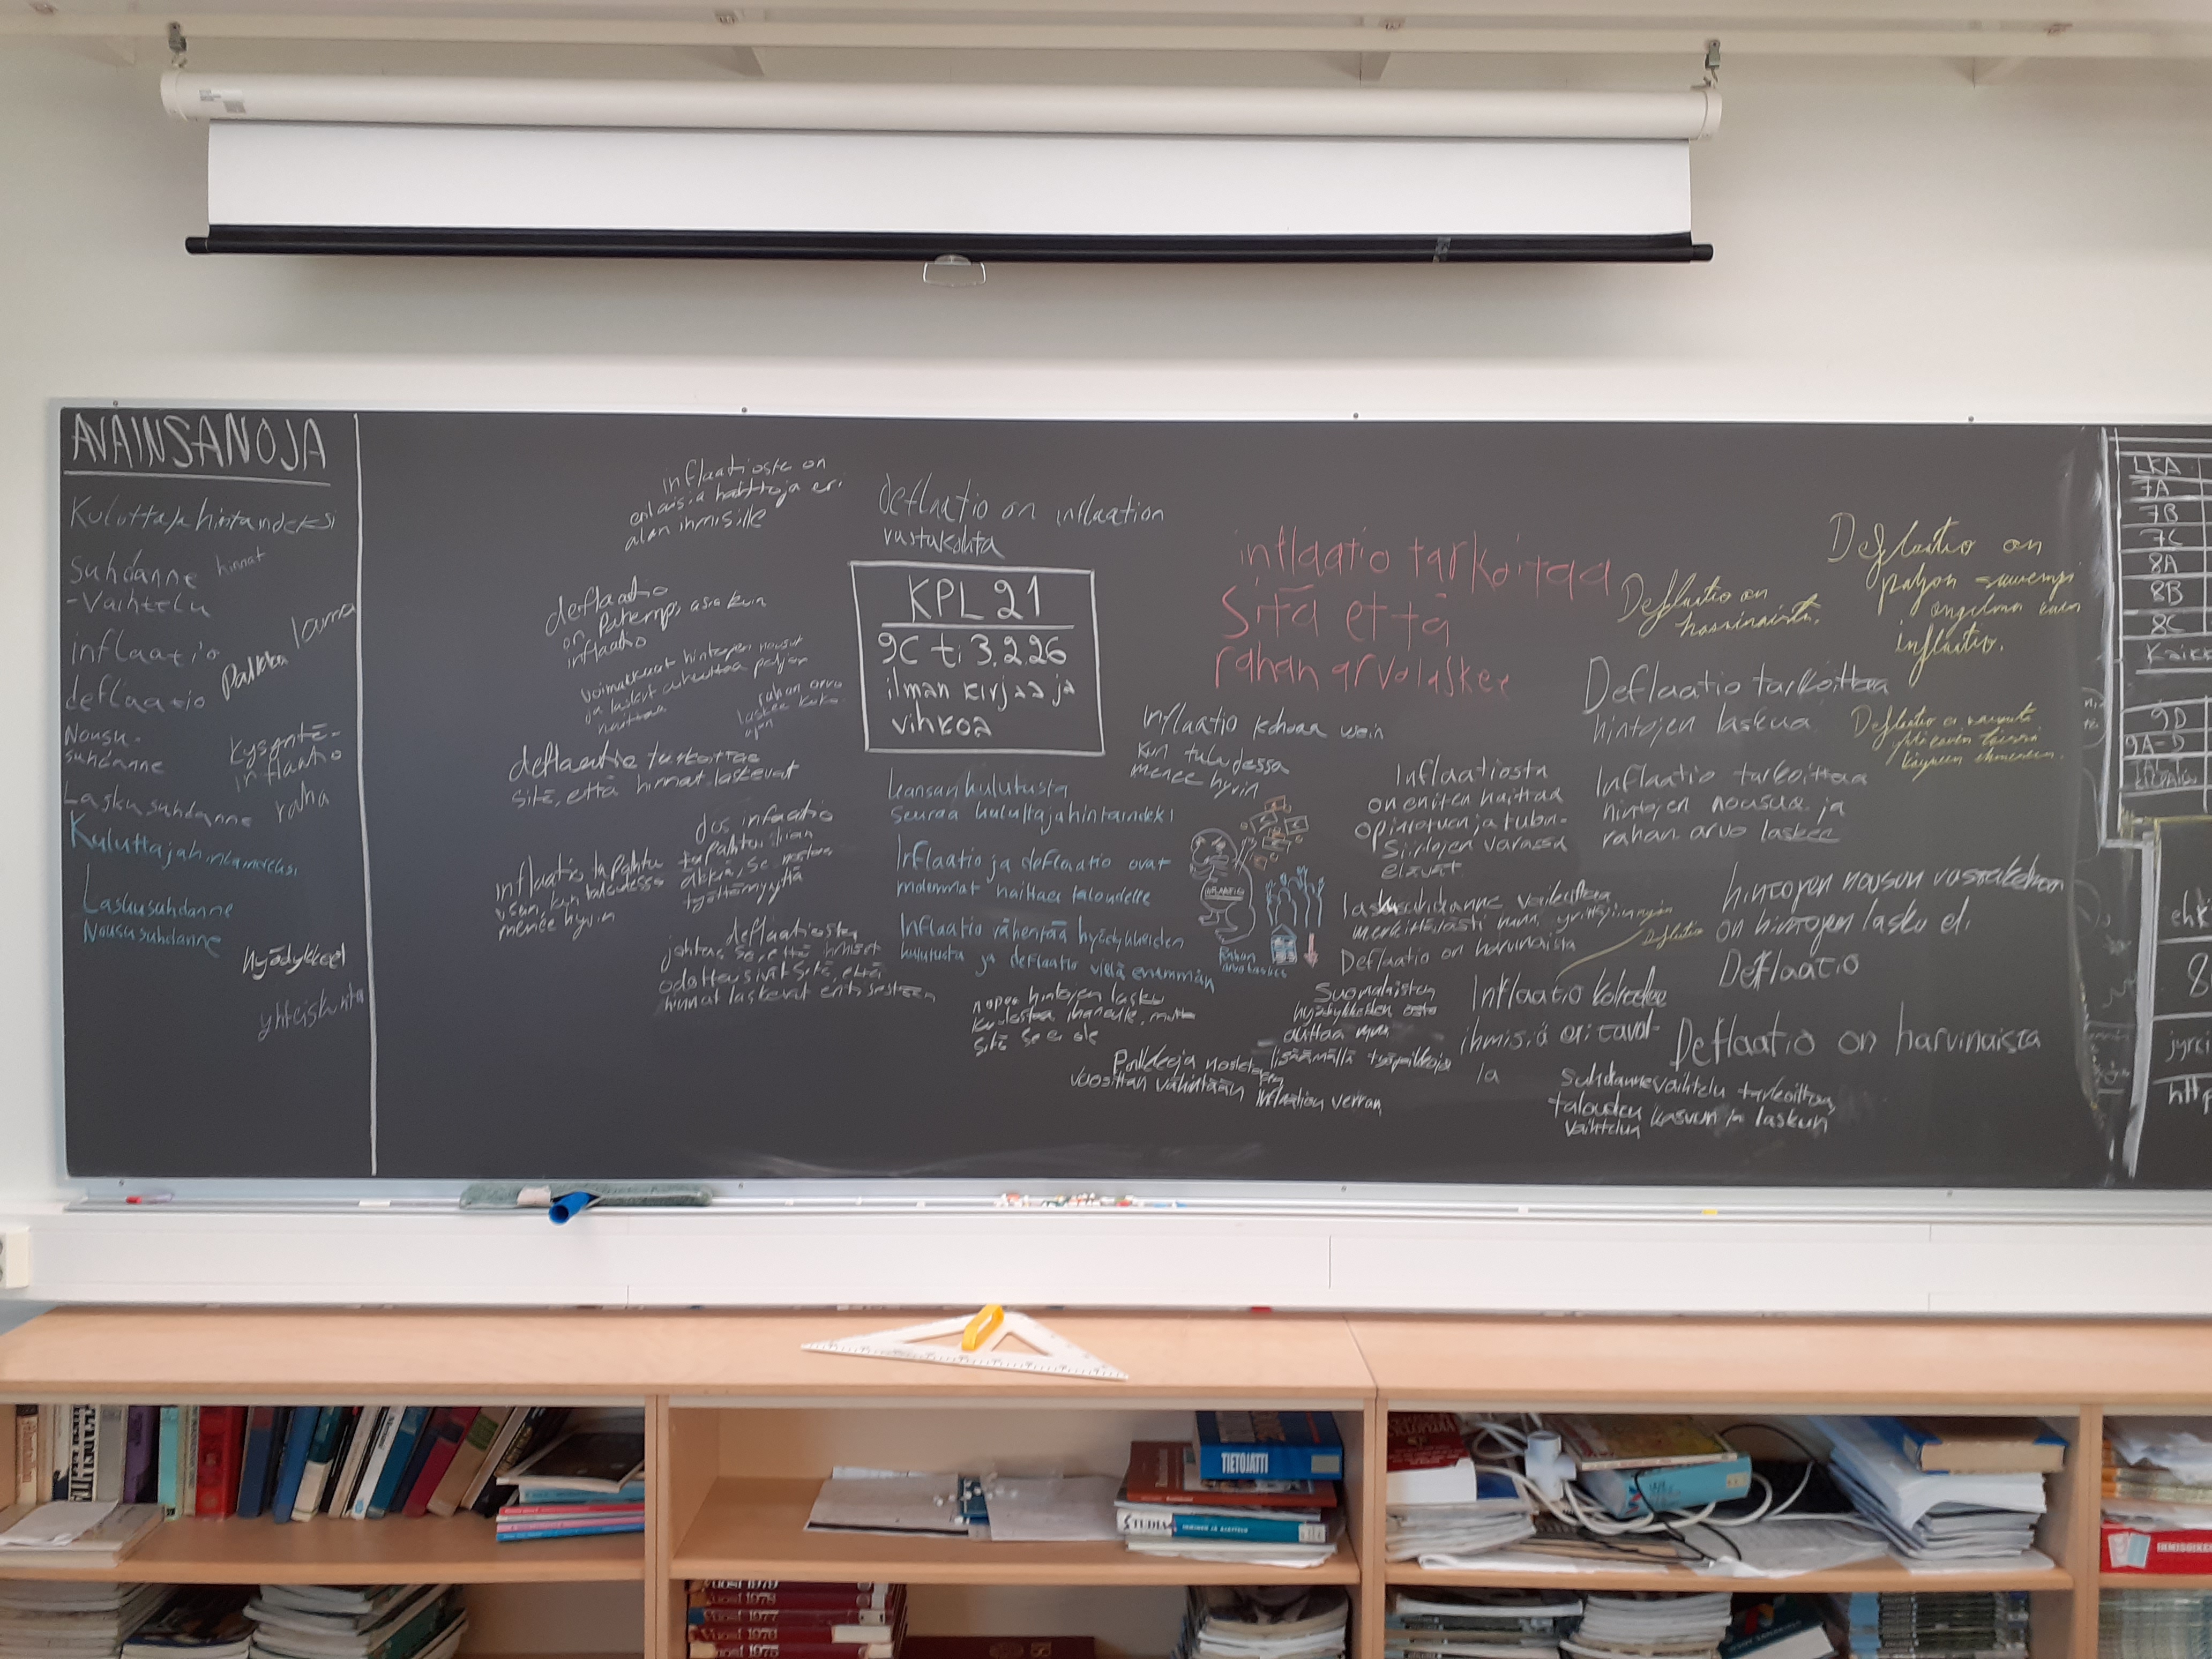 AVAINSANOJA
Kuluttajahintaindeksi
suhdanne
-Vaihtelu
hinnat
inflaatio
Palkka
lama
deflaatio
Nousu-
suhdanne
Kysyntä-
inflaatio
raha
Laskusuhdanne
Laskusuhdanne
Nousu suhdanne
hyödykkeet
yhteiskunta
inflaatioste on
erilaisia haittoja eri
alan ihmisille
deflaatio on inflaation
vastakohta
deflaatio
on Pahempi asia kuin
inflaatio
voimakkaat hintojen nousut
ja laskut aiheuttaa paljon
haittaa
rahan arvo
laskee koko
ajan
deflaatio tarkoittaa
sitä, että hinnat laskevat
Jos infaatio
tapahtuu liian
äkkiä, se nostaa
työttömyyttä
inflaatio tapahtuu
usein kun taloudessa
menee hyvin
deflaatiosta
johtuu se, että ihmiset
odottaisivat sitä, että
hinnat laskevat entisestään
KPL 21
9C ti 3.2.26
ilman kirjaa ja
vihkoa
kansankulutusta
seuraa kuluttajahintaindeksi
Inflaatio ja deflaatio ovat
molemmat haittaa taloudelle
Inflaatio vähentää hyödykkeiden
kulutusta ja deflaatio vielä enemmän
nopea hintojen lasku
kuulostaa ihanalle, mutta
sitä se ei ole
Palkkoja nostetaan
vuosittan vähintään inflaation verran
inflaatio tarkoitaa
Sitä että
rahan arvo laskee
Inflaatio kohoaa usein
kun taludessa
menee hyvin
INFLAATIO
Rahan
arvo laskee
Inflaatiosta
on eniten haittaa
opintotuen ja tulon-
siirtojen varassa
elävät.
laskusuhdanne vaikuttaa
merkittävästi mm. yrittäjiin
Deflaatio on harvinaista
Suomalaisten
hyödykkeiden osto
auttaa
lisäämällä työpaikkoja
Deflaatio on
harvinaista.
Deflaatio on
paljon suurempi
ongelma kuin
inflaatio.
Deflaatio tarkoittaa
hintojen laskua
Inflaatio tarkoittaa
hintojen nousua ja
rahan arvo laskee
hintojen nousun vastakohta
on hintojen lasku eli
Deflaatio
Deflaatio
Inflaatio koskee
ihmisiä eri taval-
la
Deflaatio on harvinaista
Suhdannevaihtelu tarkoittaa
talouden kasvun ja laskun
vaihtelua
LKA
7A
7B
7C
8A
8B
8C
9D
9A-D
8
jyrki
http
TIETOJÄTTI
STUDIA
Vuosi 1979
Vuosi 1978
Vuosi 1977
Vuosi 1976
Vuosi 1975